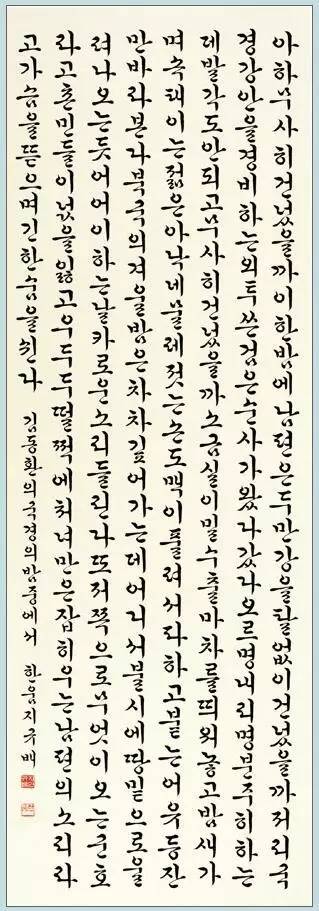 아하무사히건넜을까이한밤에남편은두만강을탈없이건넜을까저리국
경강안을경비하는외투쓴검은순사가왔다갔다오르명내리명분주히하는
데발각도안되고무사히건넜을까소금실이밀수출마차를띄워놓고밤새가
며속태이는젊은아낙네물레젓는손도맥이풀려서파하고붙는어유등잔
만바라본다북국의겨울밤은차차깊어가는데어디서불시에땅밑으로울
려나오는듯어어이하는날카로운소리들린다또저쪽으로무엇이오는군호
라고촌민들이넋을잃고우두두떨쩍에처녀만은잡히우는남편의소리라
고가슴을뜯으며긴한숨을쉰다 김동환의국경의밤중에서